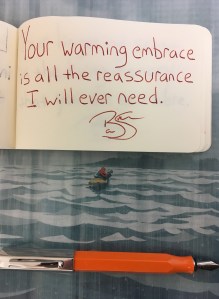 Your warming embrace
is all the reassurance
I will ever need.